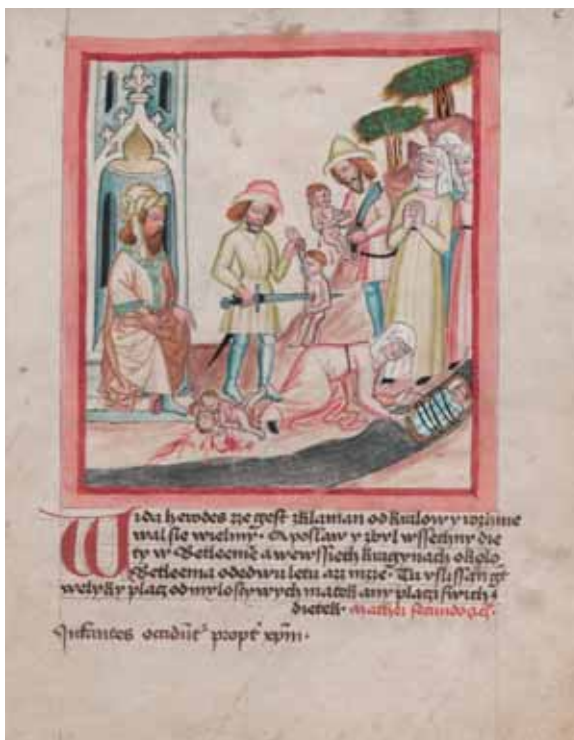 Wida herodes ze gest zklaman od kralow y
wal sie wielmy. A poslaw y zbyl wssechny die
ty w Betleemie a wewssiech kragynach okolo
Betleema od dwu letu Tu vslissan gt
welyky placz od mylostywych matek any placzi swich
dietek. Mathei secundo ca.
Infantes occidūt propt xpm.